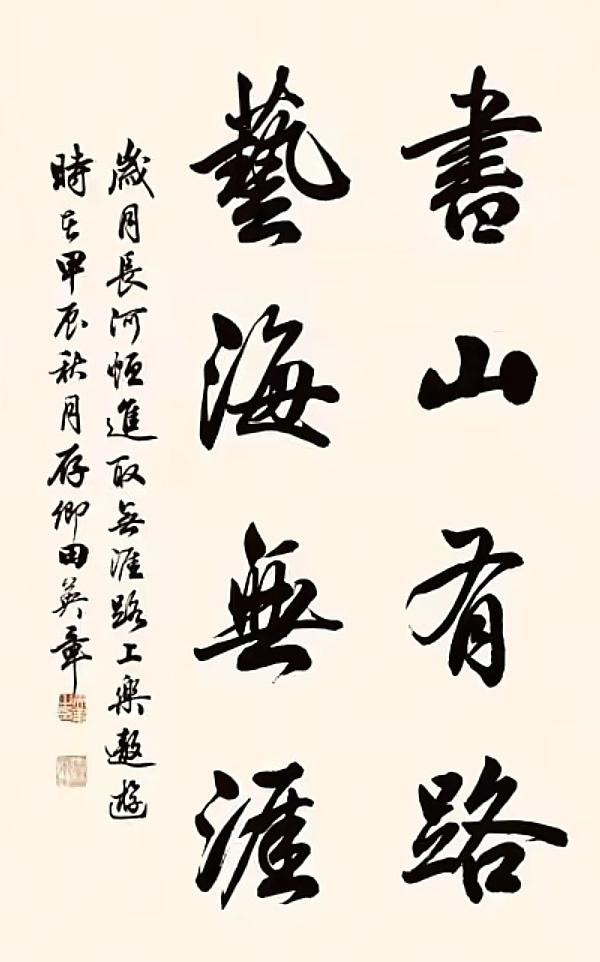 書山有路
藝海無涯
歲月長河恒進取無涯路上樂遨遊
時在甲辰秋月存卿田英章